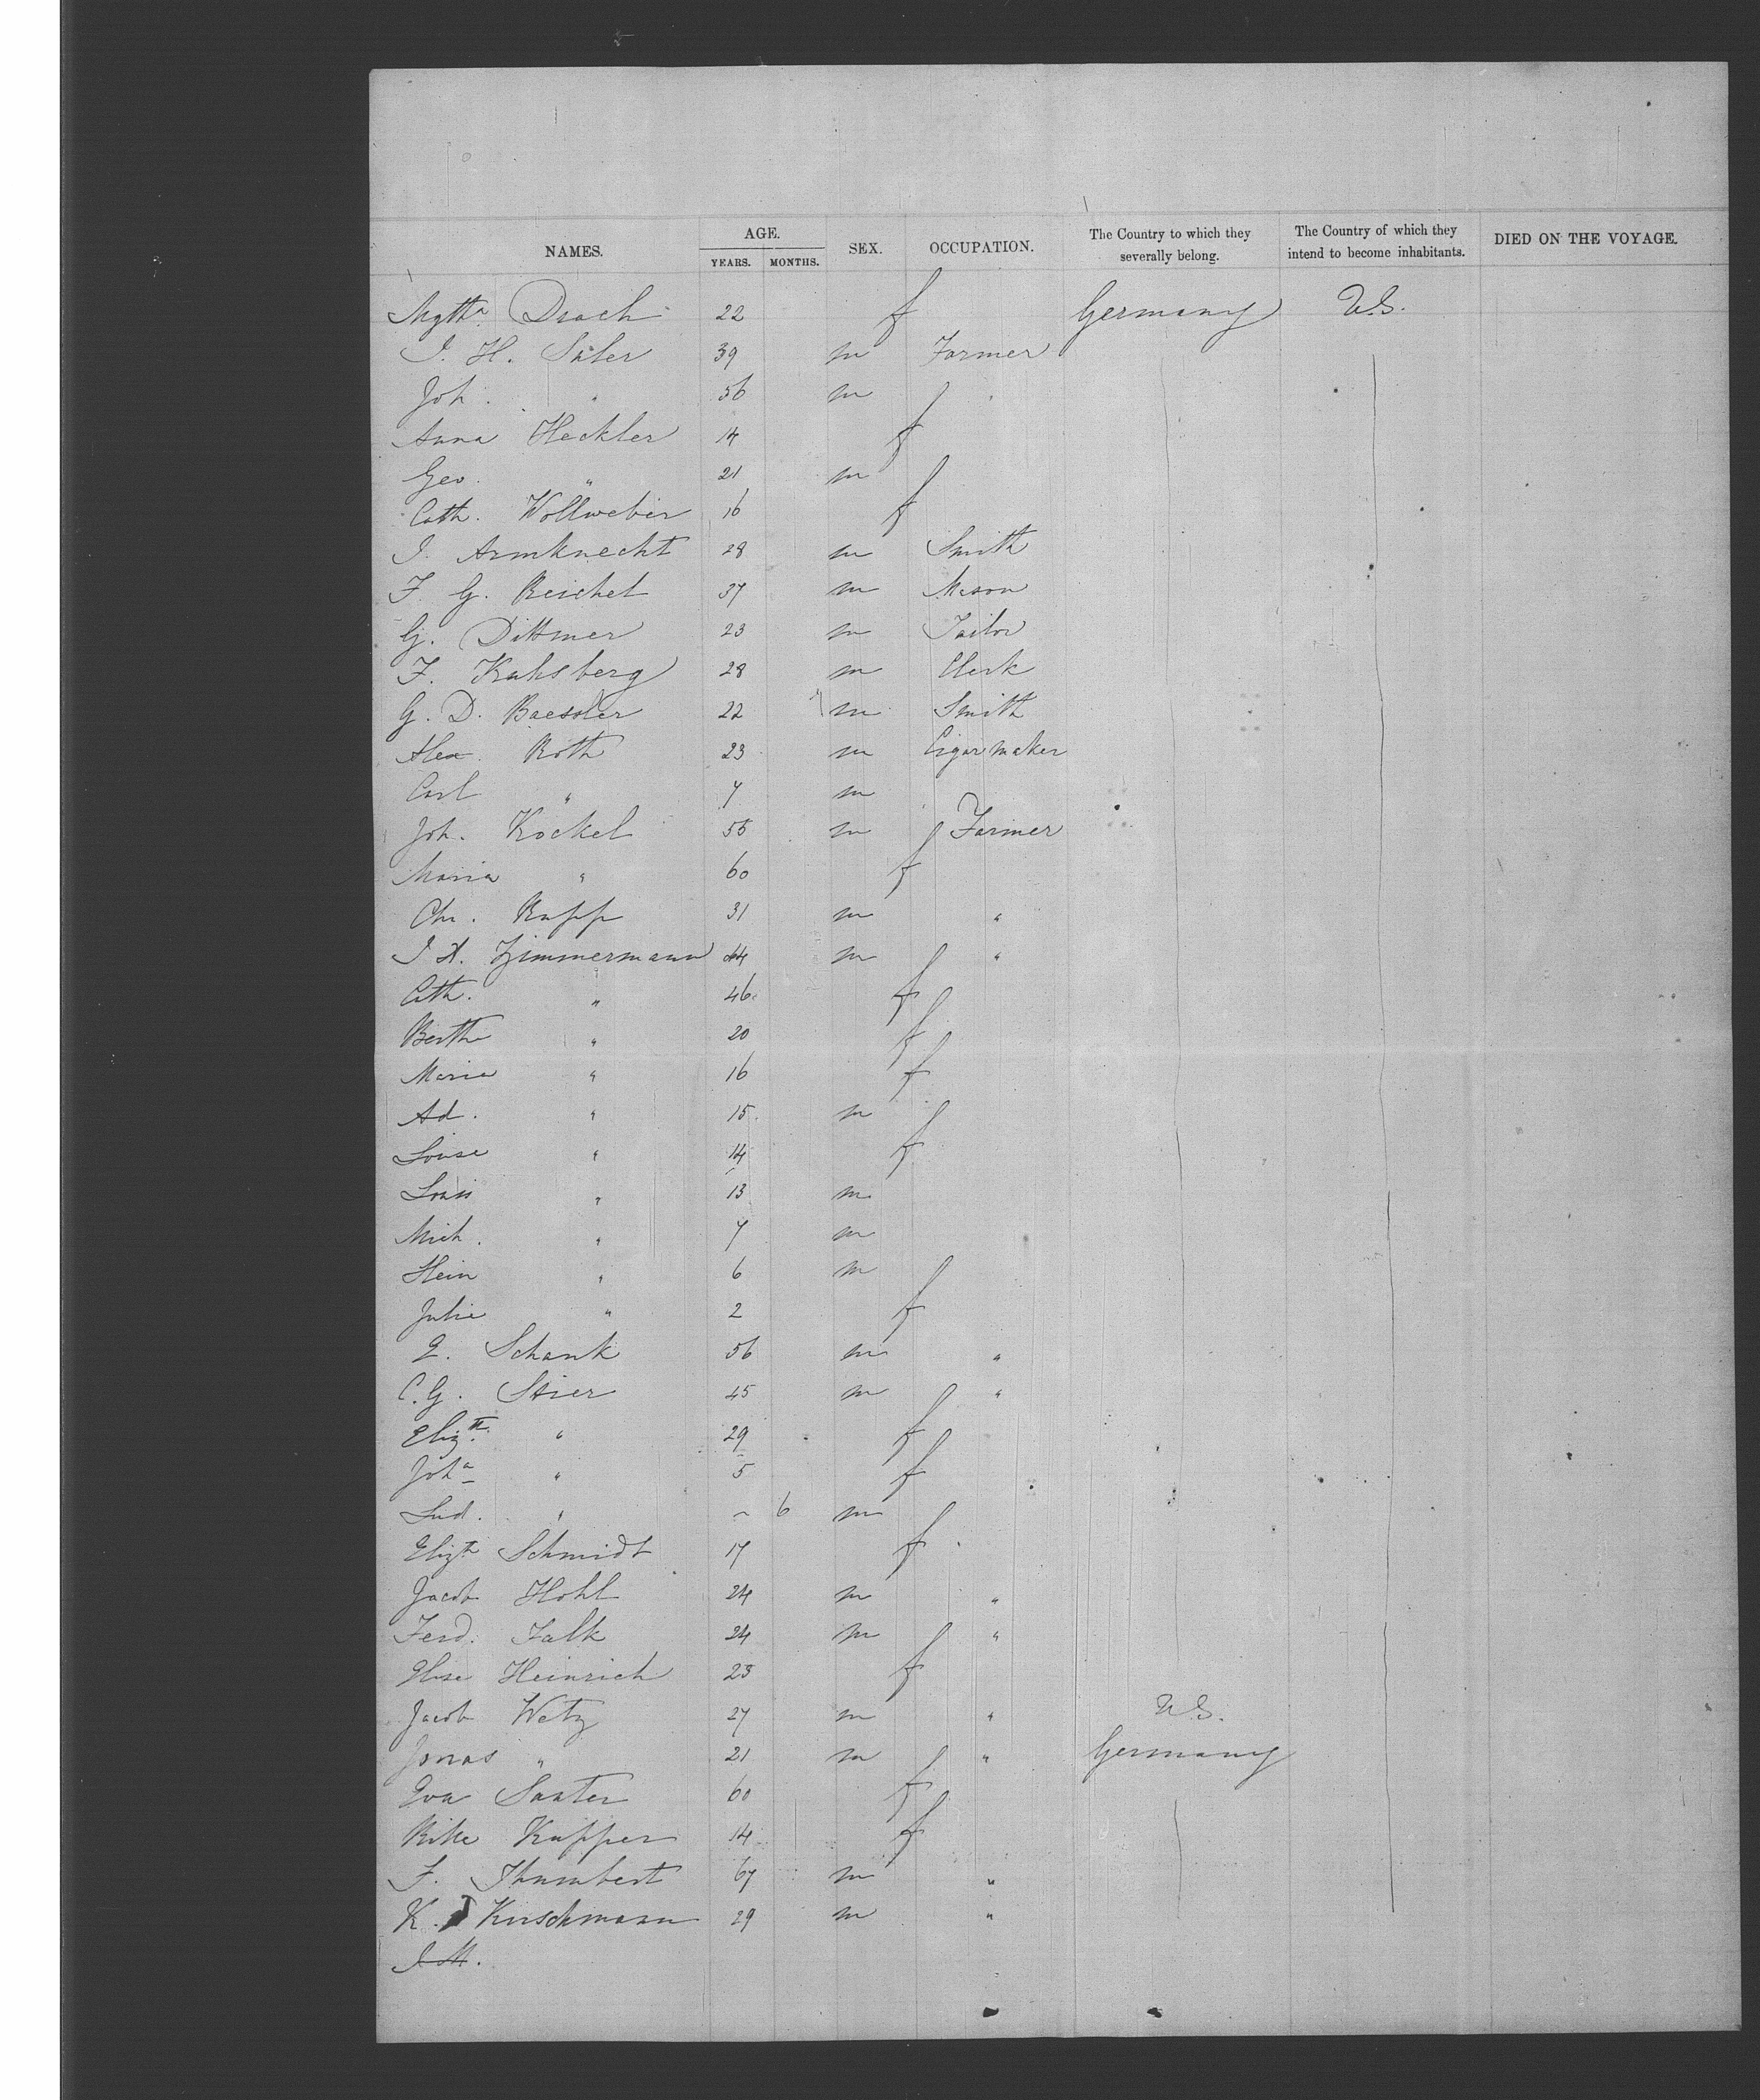 NAMES. AGE. SEX. OCCUPATION. The Country to which they severally belong. The Country of which they intend to become inhabitants. DIED ON THE VOYAGE.
YEARS. MONTHS.
Mgtha. Drach 22 f Germany U.S.
J. H. Saler 39 m Farmer
Joh. " 56 m
Anna Heckler 14 f
Geo. " 21 m
Cath. Wollweber 16 f
J. Armknecht 28 m Smith
F. G. Reichel 37 m Mason
G. Dittmer 23 m Tailor
F. Kahsberg 28 m Clerk
G. D. Baessler 22 m Smith
Alex. Roth 23 m Cigarmaker
Carl " 7 m
Joh. Kockel 55 m Farmer
Maria " 60 f
Chr. Rupp 31 m "
J X. Zimmermann 44 m "
Cath. " 46 f
Bertha " 20 f
Maria " 16 f
Ad. " 15 m
Louise " 14 f
Louis " 13 m
Mich. " 7 m
Hein " 6 m
Julie " 2 f
E. Schank 56 m "
C. G. Stier 45 m "
Elizth. " 29 f
Joha " 5 f
Lud. " - 6 m
Elizth Schmidt 17 f
Jacob Hohl 24 m "
Ferd. Falk 24 m "
Elise Heinrich 23 f
Jacob Wetz 27 m " U.S.
Jonas " 21 m " Germany
Eva Sauter 60 f
Rike Kupper 14 f
F. Thumbert 67 m "
K. Kirschmann 29 m "
J. H.